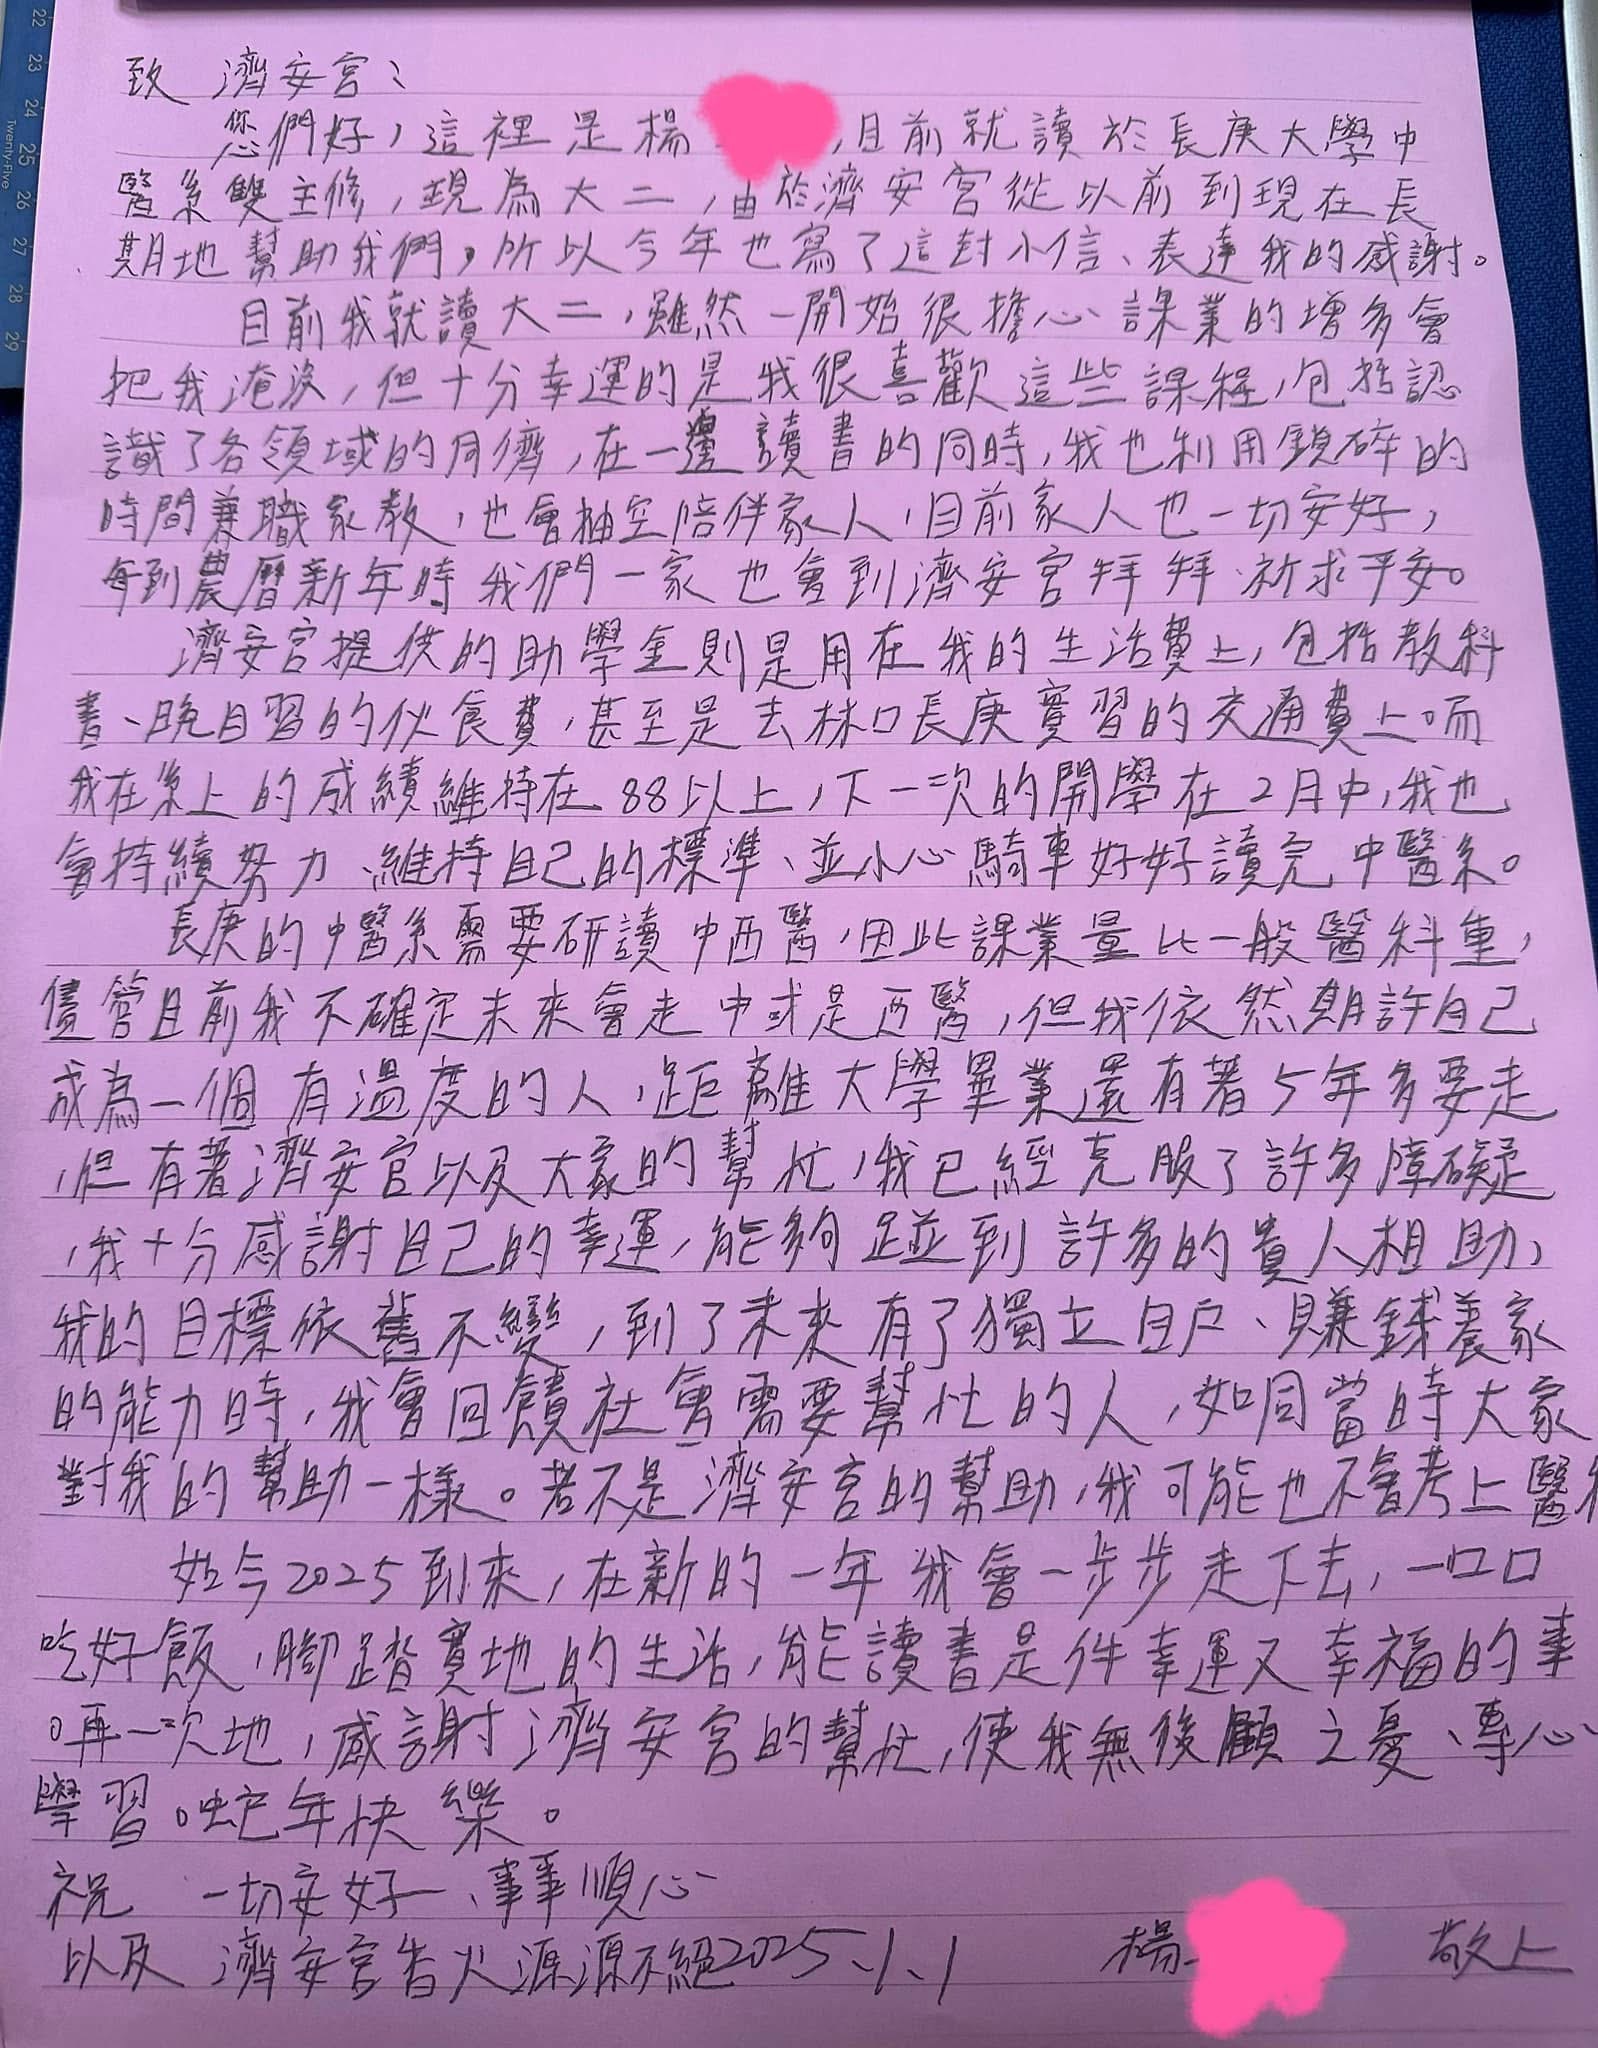 22
23
24
25
Twenty-Five
26
27
28
29
致 濟安宮:
您們好,這裡是楊 ,目前就讀於長庚大學中
醫系雙主修,現為大二,由於濟安宮從以前到現在長
期地幫助我們,所以今年也寫了這封小信、表達我的感謝。
目前我就讀大二,雖然一開始很擔心課業的增多會
把我淹沒,但十分幸運的是我很喜歡這些課程,包括認
識了各領域的同儕,在一邊讀書的同時,我也利用鎖碎的
時間兼職家教,也會抽空陪伴家人,目前家人也一切安好,
每到農曆新年時我們一家也會到濟安宮拜拜、祈求平安。
濟安宮提供的助學金則是用在我的生活費上,包括教科
書、晚自習的伙食費,甚至是去林口長庚實習的交通費上。而
我在系上的成績維持在88以上,下一次的開學在2月中,我也
會持續努力、維持自己的標準、並小心騎車好好讀完中醫系。
長庚的中醫系需要研讀中西醫,因此課業量比一般醫科重,
儘管目前我不確定未來會走中或是西醫,但我依然期許自己
成為一個有溫度的人,距離大學畢業還有著5年多要走
,但有著濟安宮以及大家的幫忙,我已經克服了許多障礙
,我十分感謝自己的幸運,能夠碰到許多的貴人相助,
我的目標依舊不變,到了未來有了獨立自戶、賺錢養家
的能力時,我會回饋社會需要幫忙的人,如同當時大家
對我的幫助一樣。若不是濟安宮的幫助,我可能也不會考上醫
如今2025到來,在新的一年我會一步步走下去,一口口
吃好飯,腳踏實地的生活,能讀書是件幸運又幸福的事
。再一次地,感謝濟安宮的幫忙,使我無後顧之憂、專心
學習。蛇年快樂。
祝 一切安好、事事順心
以及 濟安宮香火源源不絕2025、1、1 楊 敬上